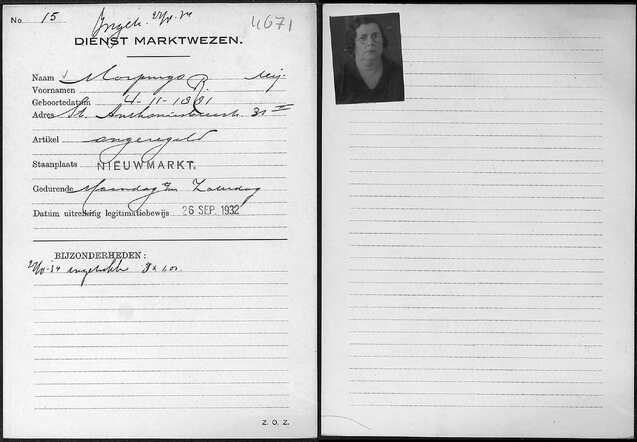 No 15
4671
DIENST MARKTWEZEN.
Naam Morpurgo
Voornamen R.
Geboortedatum 4-11-1881
Adres St. Anthoniesbreestr. 31 II
Artikel ongeregeld
Staanplaats NIEUWMARKT.
Gedurende Maandag t/m Zaterdag
Datum uitreiking legitimatiebewijs 26 SEP. 1932
BIJZONDERHEDEN:
Z. O. Z.